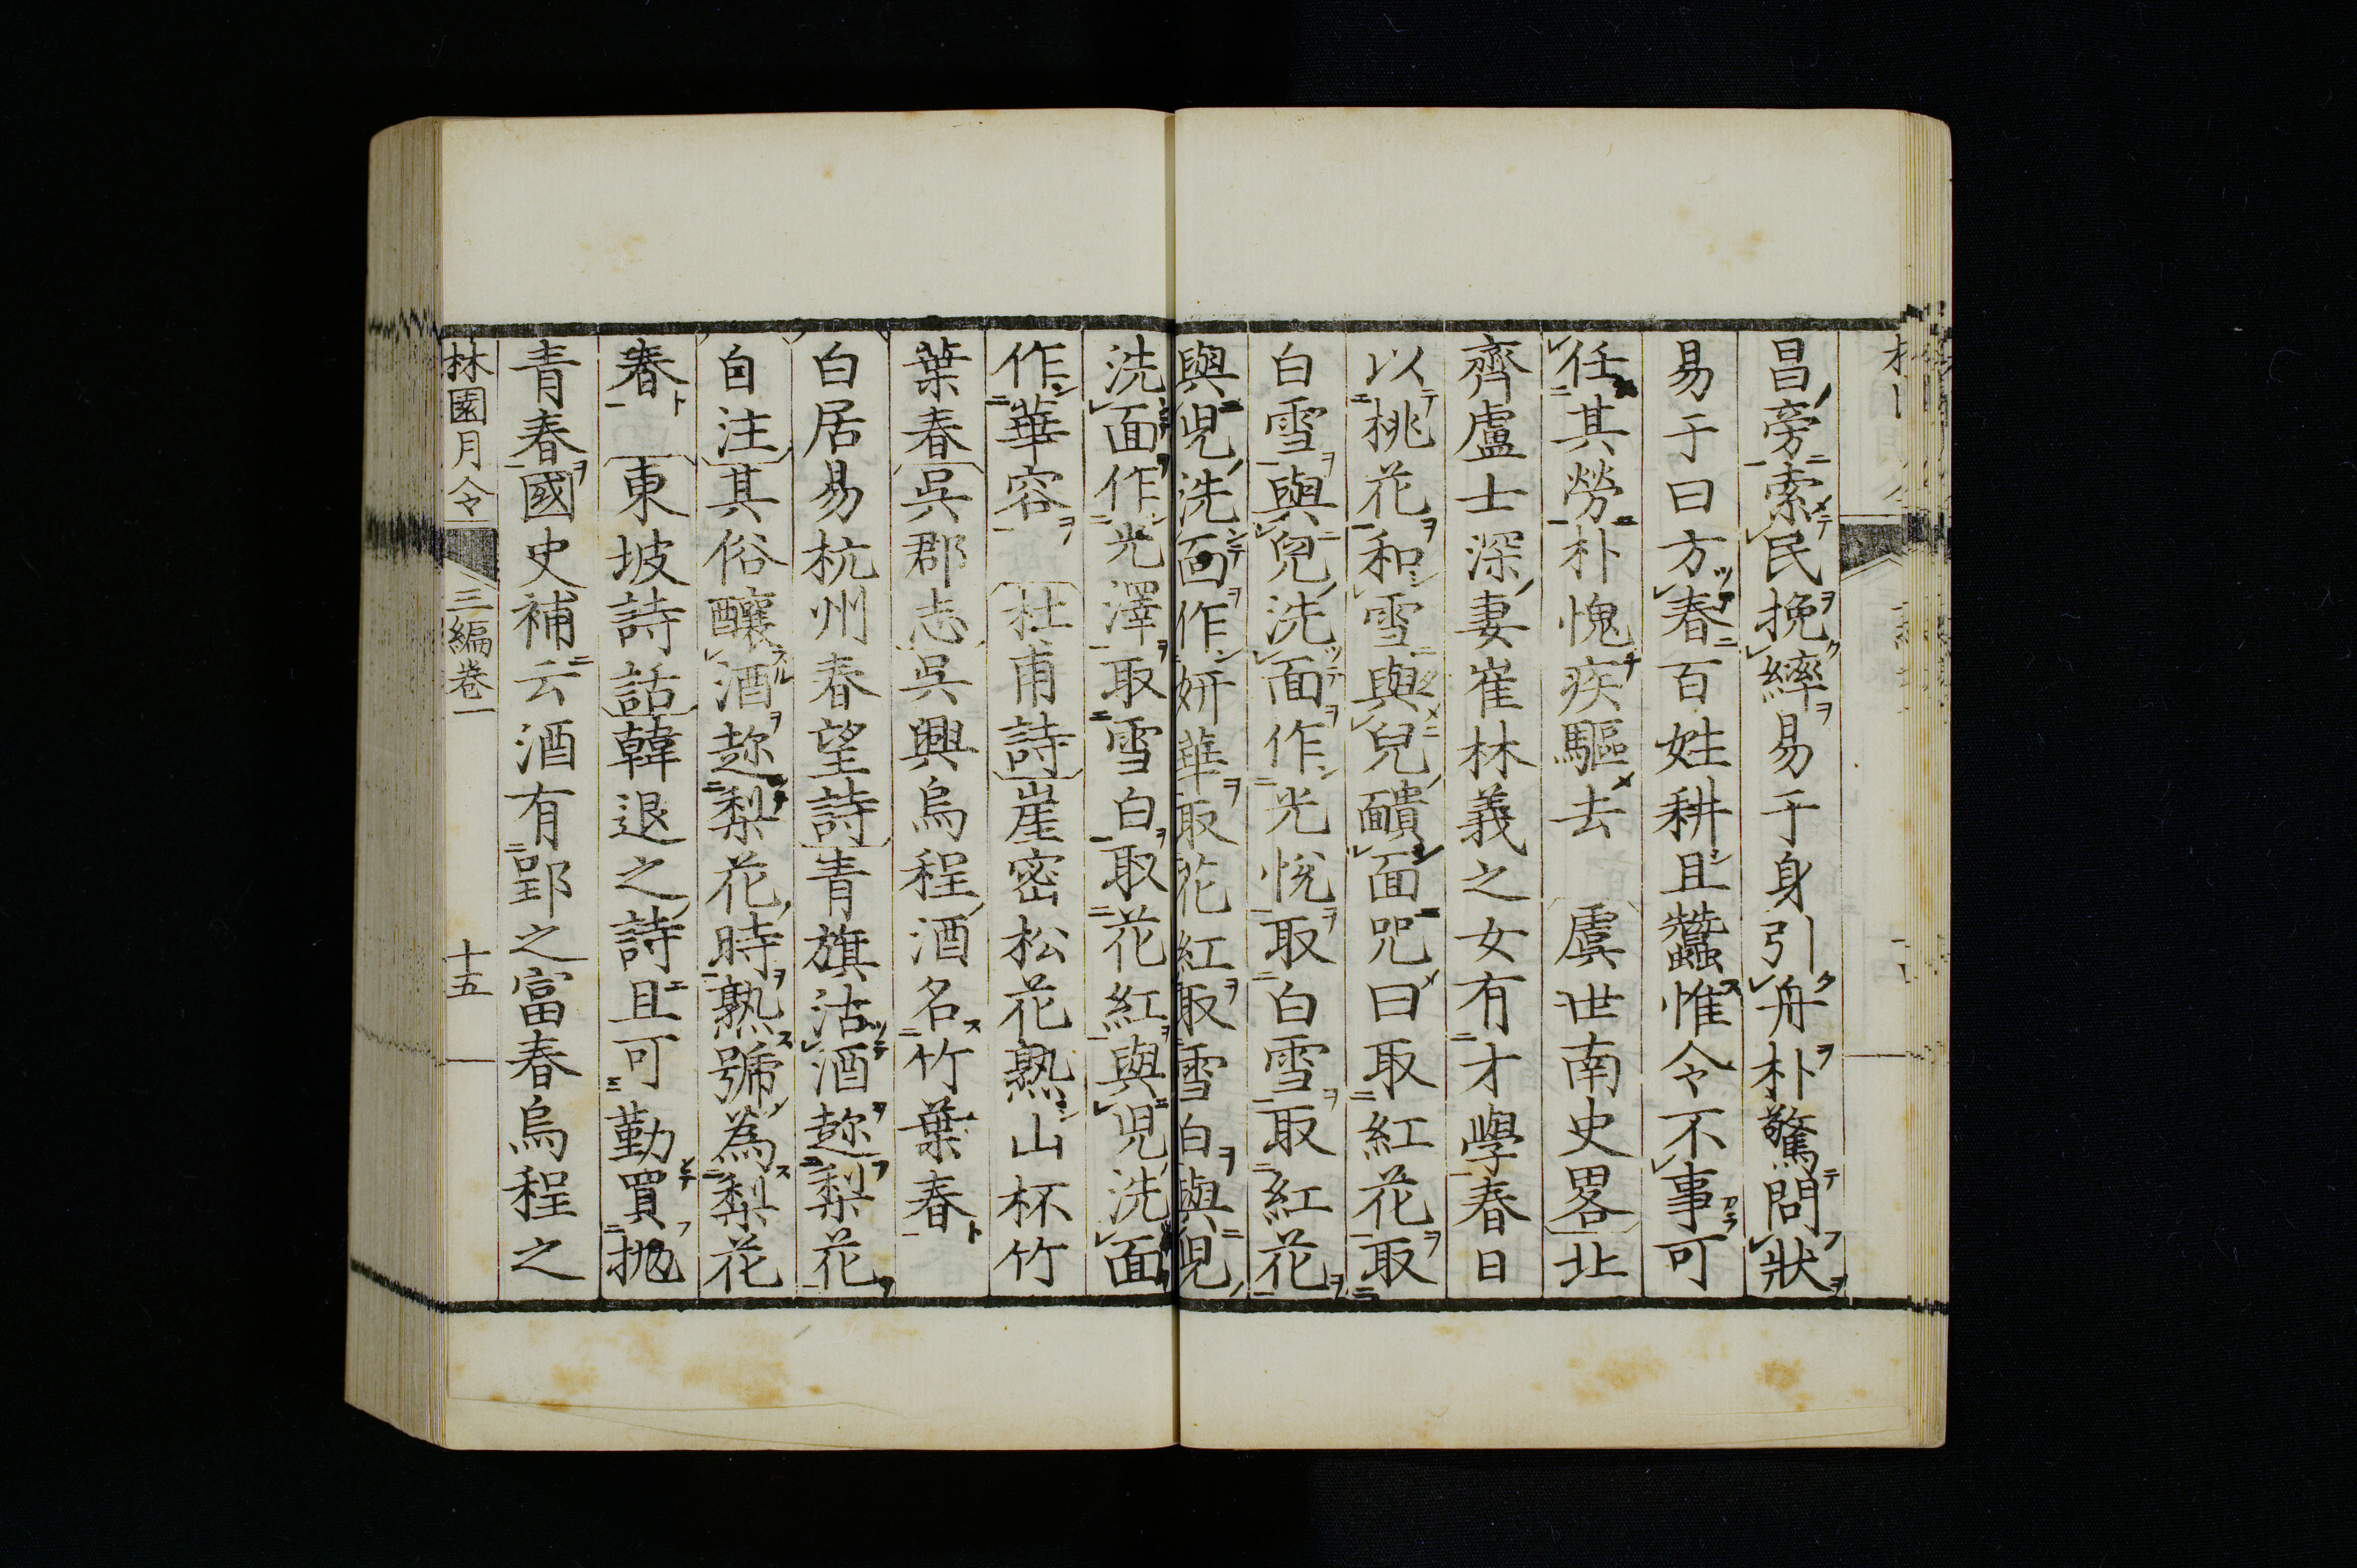 昌旁索民挽繂易于身引舟朴驚問狀
易于曰方春百姓耕且蠶惟令不事可
任其勞朴愧疾驅去　虞世南史畧北
齊盧士深妻崔林義之女有才學春日
以桃花和雪與兒靧面咒曰取紅花取
白雪與兒洗面作光悅取白雪取紅花
與兒洗面作妍華取花紅取雪白與兒
洗面作光澤取雪白取花紅與兒洗面
作華容　杜甫詩崖密松花熟山杯竹
葉春吳郡志吳興烏程酒名竹葉春
白居易杭州春望詩青旗沽酒趂梨花
自注其俗釀酒趂梨花時熟號為梨花
春　東坡詩話韓退之詩且可勤買抛
青春國史補云酒有郢之富春烏程之
林園月令　三編卷一　十五